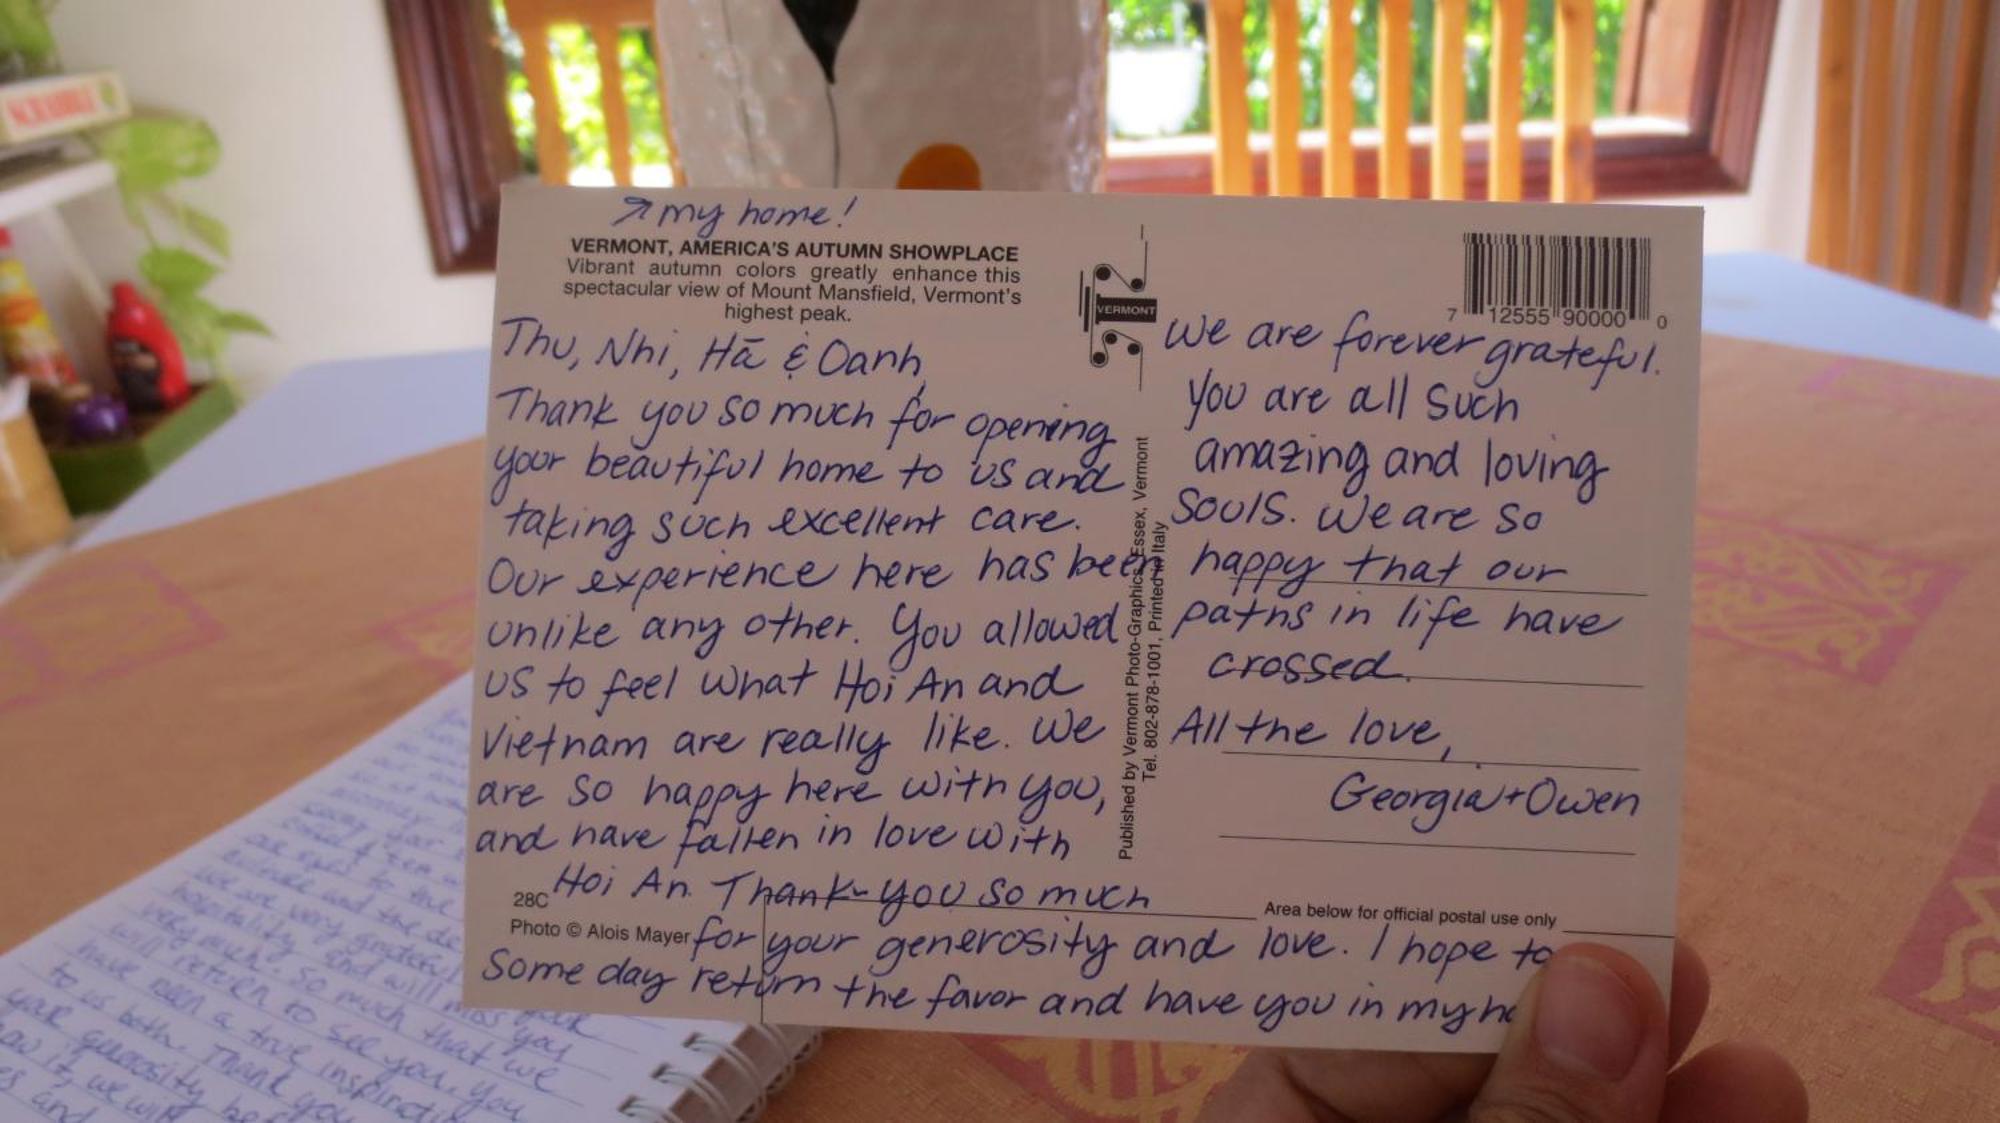 SCRABBLE
↗ my home!
VERMONT, AMERICA'S AUTUMN SHOWPLACE
Vibrant autumn colors greatly enhance this
spectacular view of Mount Mansfield, Vermont's
highest peak.
Thu, Nhi, Hā & Oanh,
Thank you so much for opening
your beautiful home to us and
taking such excellent care.
Our experience here has been
unlike any other. You allowed
us to feel what Hoi An and
Vietnam are really like. We
are so happy here with you,
and have fallen in love with
Hoi An. Thank you so much
for your generosity and love. I hope to
some day return the favor and have you in my
28C
Photo © Alois Mayer
VERMONT
Published by Vermont Photo-Graphics, Essex, Vermont
Tel. 802-878-1001, Printed in Italy
7 12555 90000 0
We are forever grateful.
You are all such
amazing and loving
souls. We are so
happy that our
paths in life have
crossed.
All the love,
Georgia + Owen
Area below for official postal use only
we are very grateful
hospitality and will miss you
very much. So much that we
will return to see you. You
have been a true inspiration
to us both. Thank you
your generosity